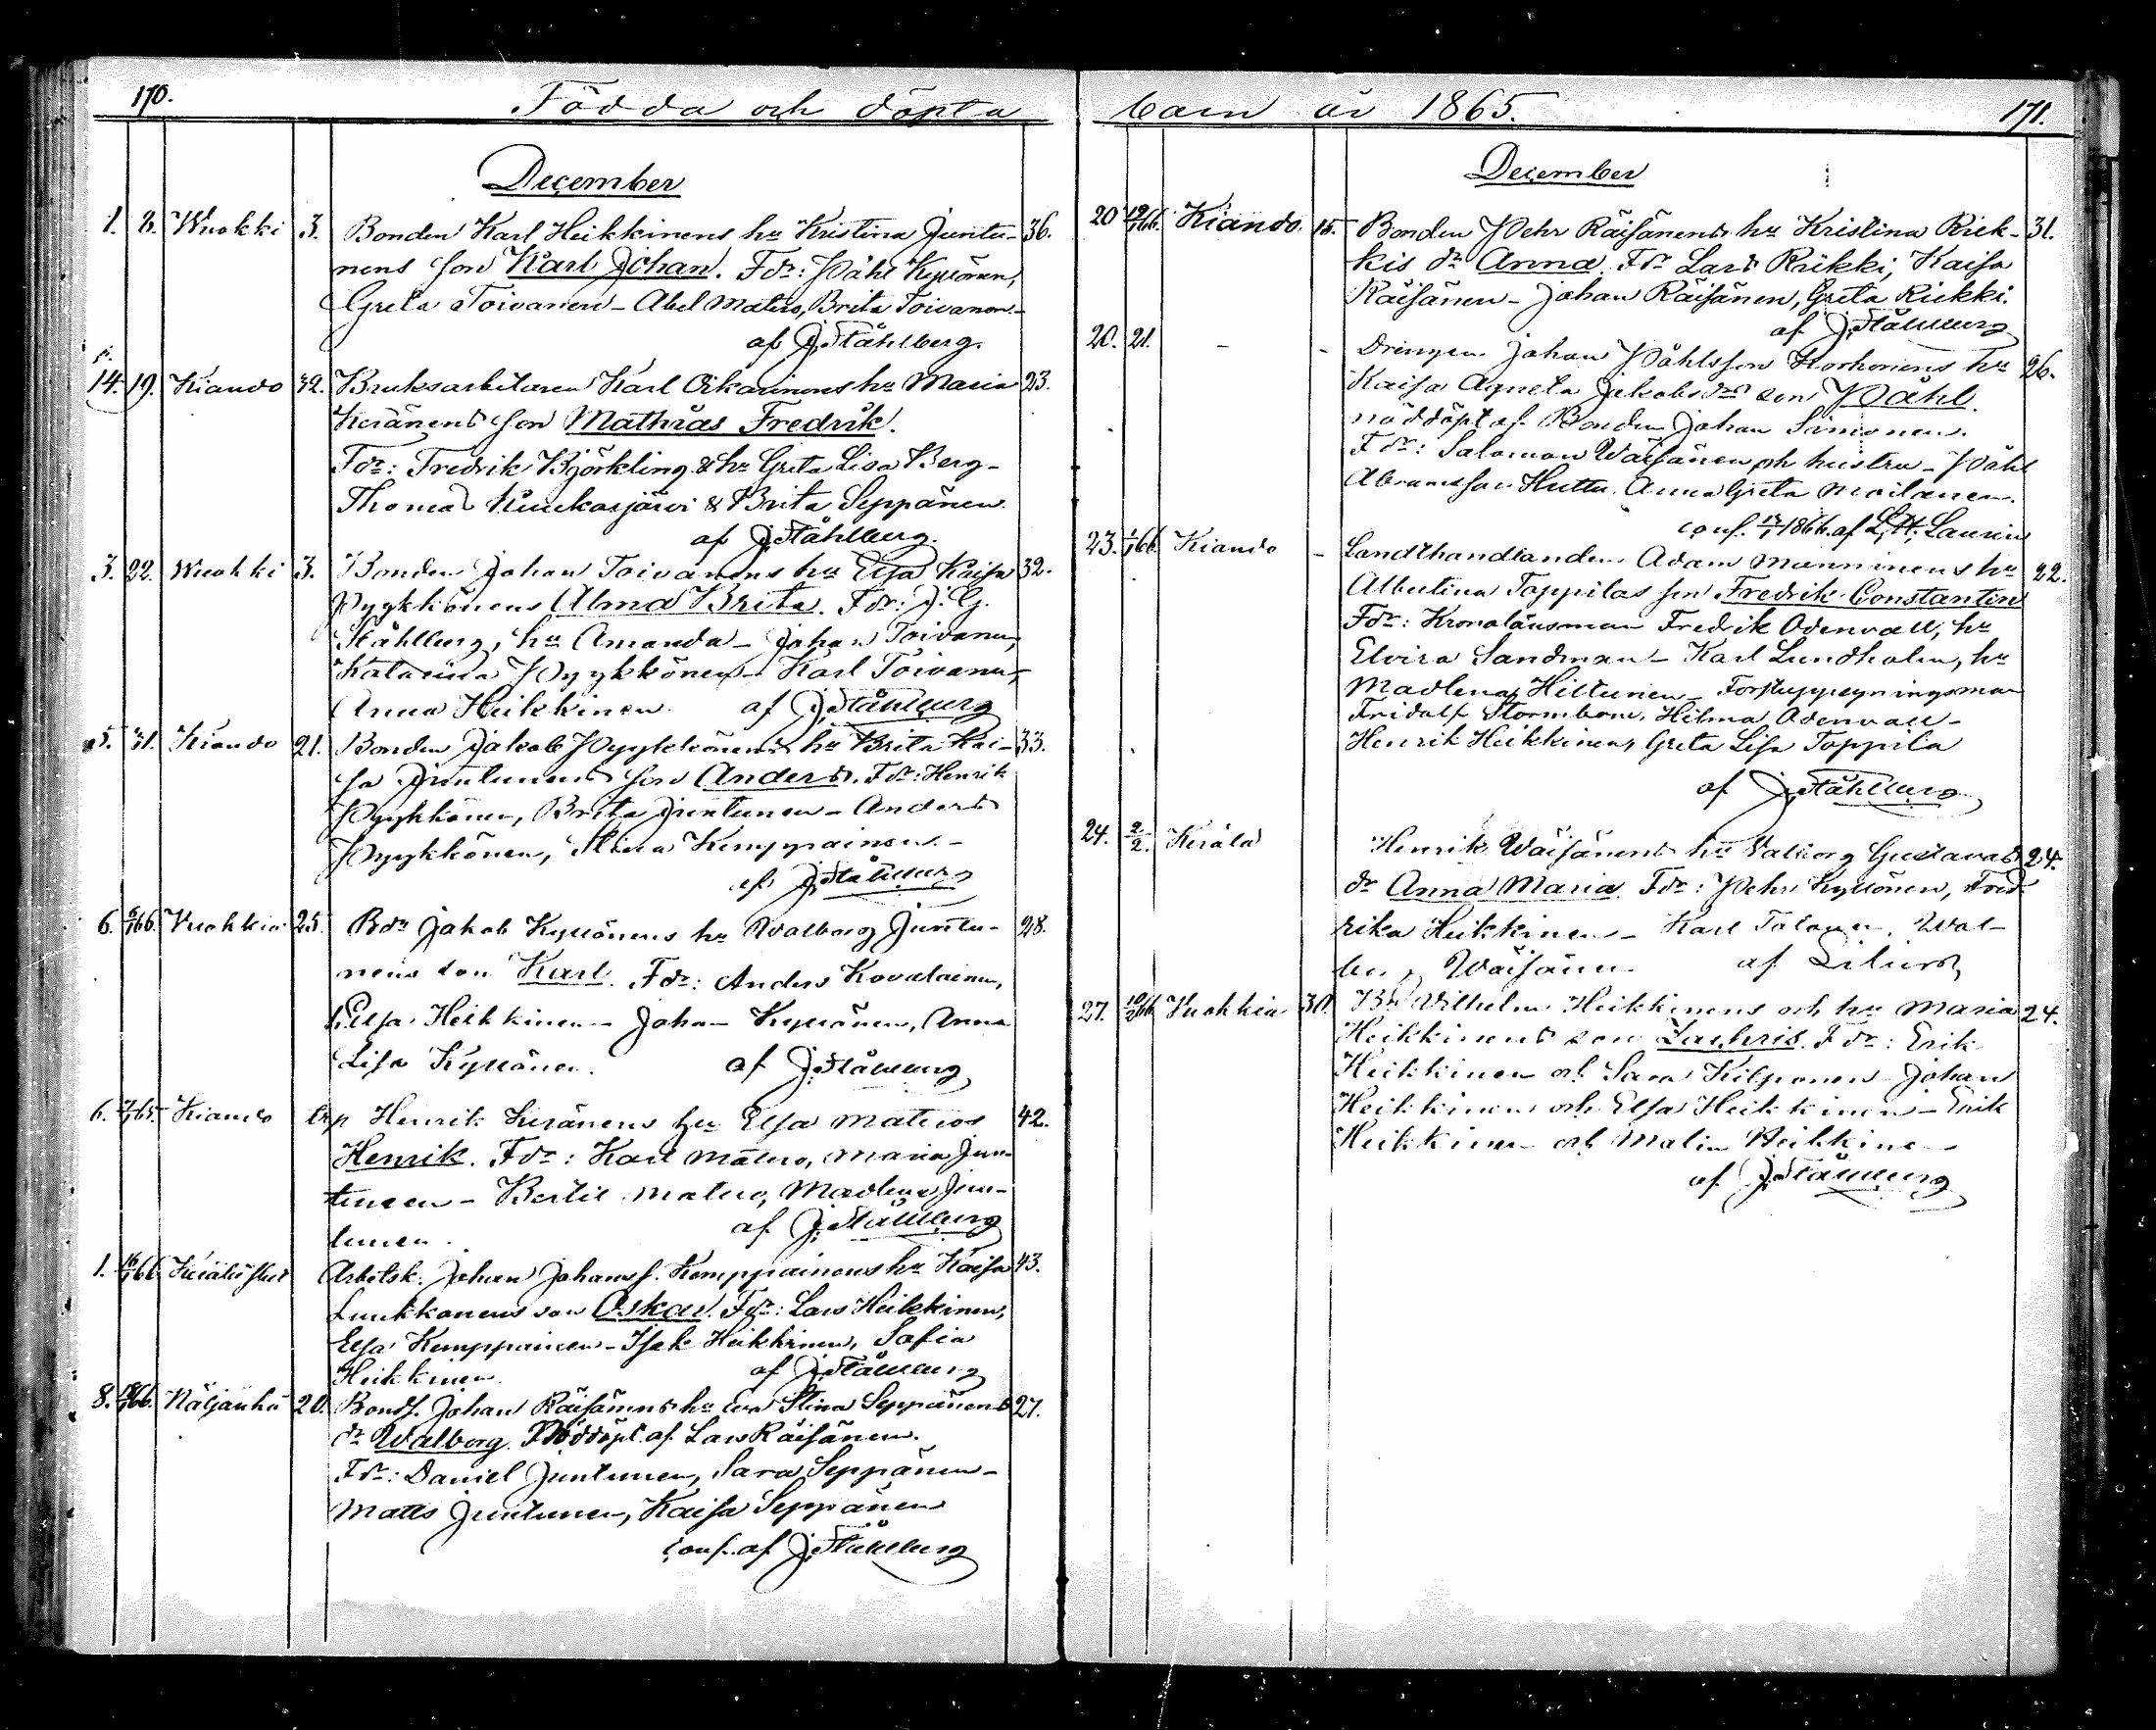 170.
Födda och döpta
December
1. 2. Wuokki 3. Bonden Karl Heikkinens hu Kristina Juntu- 36.
nens son Karl Johan. Fdr: Påhl Kyllönen,
Greta Toivanen - Abel Matero, Brita Toivanen.
af J. Ståhlberg.
14. 19. Kiando 32. Bruksarbetaren Karl Oikarinens hu Maria 23.
Keränens son Mathias Fredrik.
Fdr: Fredrik Björkling & hu Greta Lisa Berg -
Thomas Kiukasjärvi & Brita Seppänen.
af J. Ståhlberg.
3. 22. Wuokki 3. Bonden Johan Toivanens hu Elsa Kaisa 32.
Pyykkönens Alma Brita. Fdr: J. G.
Ståhlberg, hu Amanda - Johan Toivanen,
Katarina Pyykkönen - Karl Toivanen,
Anna Heikkinen. af J. Ståhlberg
5. 31. Kiando 21. Bonden Jakob Pyykkönens hu Brita Kai- 33.
sa Juntunens son Anders. Fdr: Henrik
Pyykkönen, Brita Juntunen - Anders
Pyykkönen, Stina Kemppainen. -
af J. Ståhlberg
6. 6/1 66. Vuokkia 25. Bdn Jakob Kyllönens hu Walborg Juntu- 28.
nens son Karl. Fdr: Anders Kovalainen,
Elsa Heikkinen - Johan Kyllönen, Anna
Lisa Kyllönen. af J. Ståhlberg
6. 65. Kiando Henrik Keränens hu Elsa Materos 42.
Henrik. Fdr: Karl Matero, Maria Jun-
tunen - Bertil Matero, Madlena Jun-
tunen. af J. Ståhlberg
1. 16/1 66. Arbetsk. Johan Johanss. Kemppainens hu Kaisa 43.
Luukkonens son Oskar. Fdr: Lars Heikkinen,
Elsa Kemppainen - Isak Heikkinen, Sofia
Heikkinen. af J. Ståhlberg
8. 66. Näljänkä 20. Bonds. Johan Räisänens hu Eva Stina Seppänens 27.
dr Walborg. Nöddöpt af Lars Räisänen.
Fdr: Daniel Juntunen, Sara Seppänen -
Matts Juntunen, Kaisa Seppänen
conf. af J. Ståhlberg
barn år 1865.
171.
December
20 66. Kiando. 15. Bonden Pehr Räisänens hu Kristina Riek- 31.
kis dr Anna. Fdr Lars Riekki, Kaisa
Räisänen - Johan Räisänen, Greta Riekki.
af J. Ståhlberg
20. 21. - - Drängen Johan Påhlsson Korhonens hu 26.
Kaisa Agneta Jakobsdrs son Påhl.
nöddöpt af Bonden Johan Simonen.
Fdr: Salomon Wäisänen och hustru - Påhl
Abramsson Huttu, Anna Greta Moilanen.
conf. 1866. af L. H. Laurin
23. 66. Kiando - Landthandlanden Adam Manninens hu 22.
Albertina Toppilas son Fredrik Constantin
Fdr: Kronolänsman Fredrik Odenvall, hu
Elvira Sandman - Karl Lundholm, hu
Madlena Hiltunen - Forstuppsyningsman
Fridolf Stormbom, Hilma Odenvall -
Henrik Heikkinen, Greta Lisa Toppila
af J. Ståhlberg
24. 2/2. Kerälä Henrik Wäisänens hu Valborg Gustavas 24.
dr Anna Maria. Fdr: Pehr Kyllönen, Fred-
rika Heikkinen - Karl Tolonen, Wal-
borg Wäisänen. af Lilius
27. 66 Vuokkia 30. Bd Vilhelm Heikkinens och hu Maria 24.
Heikkinens son Zachris. Fdr: Erik
Heikkinen och Sara Kilponen - Johan
Heikkinen och Elsa Heikkinen - Erik
Heikkinen och Malin Heikkinen
af J. Ståhlberg